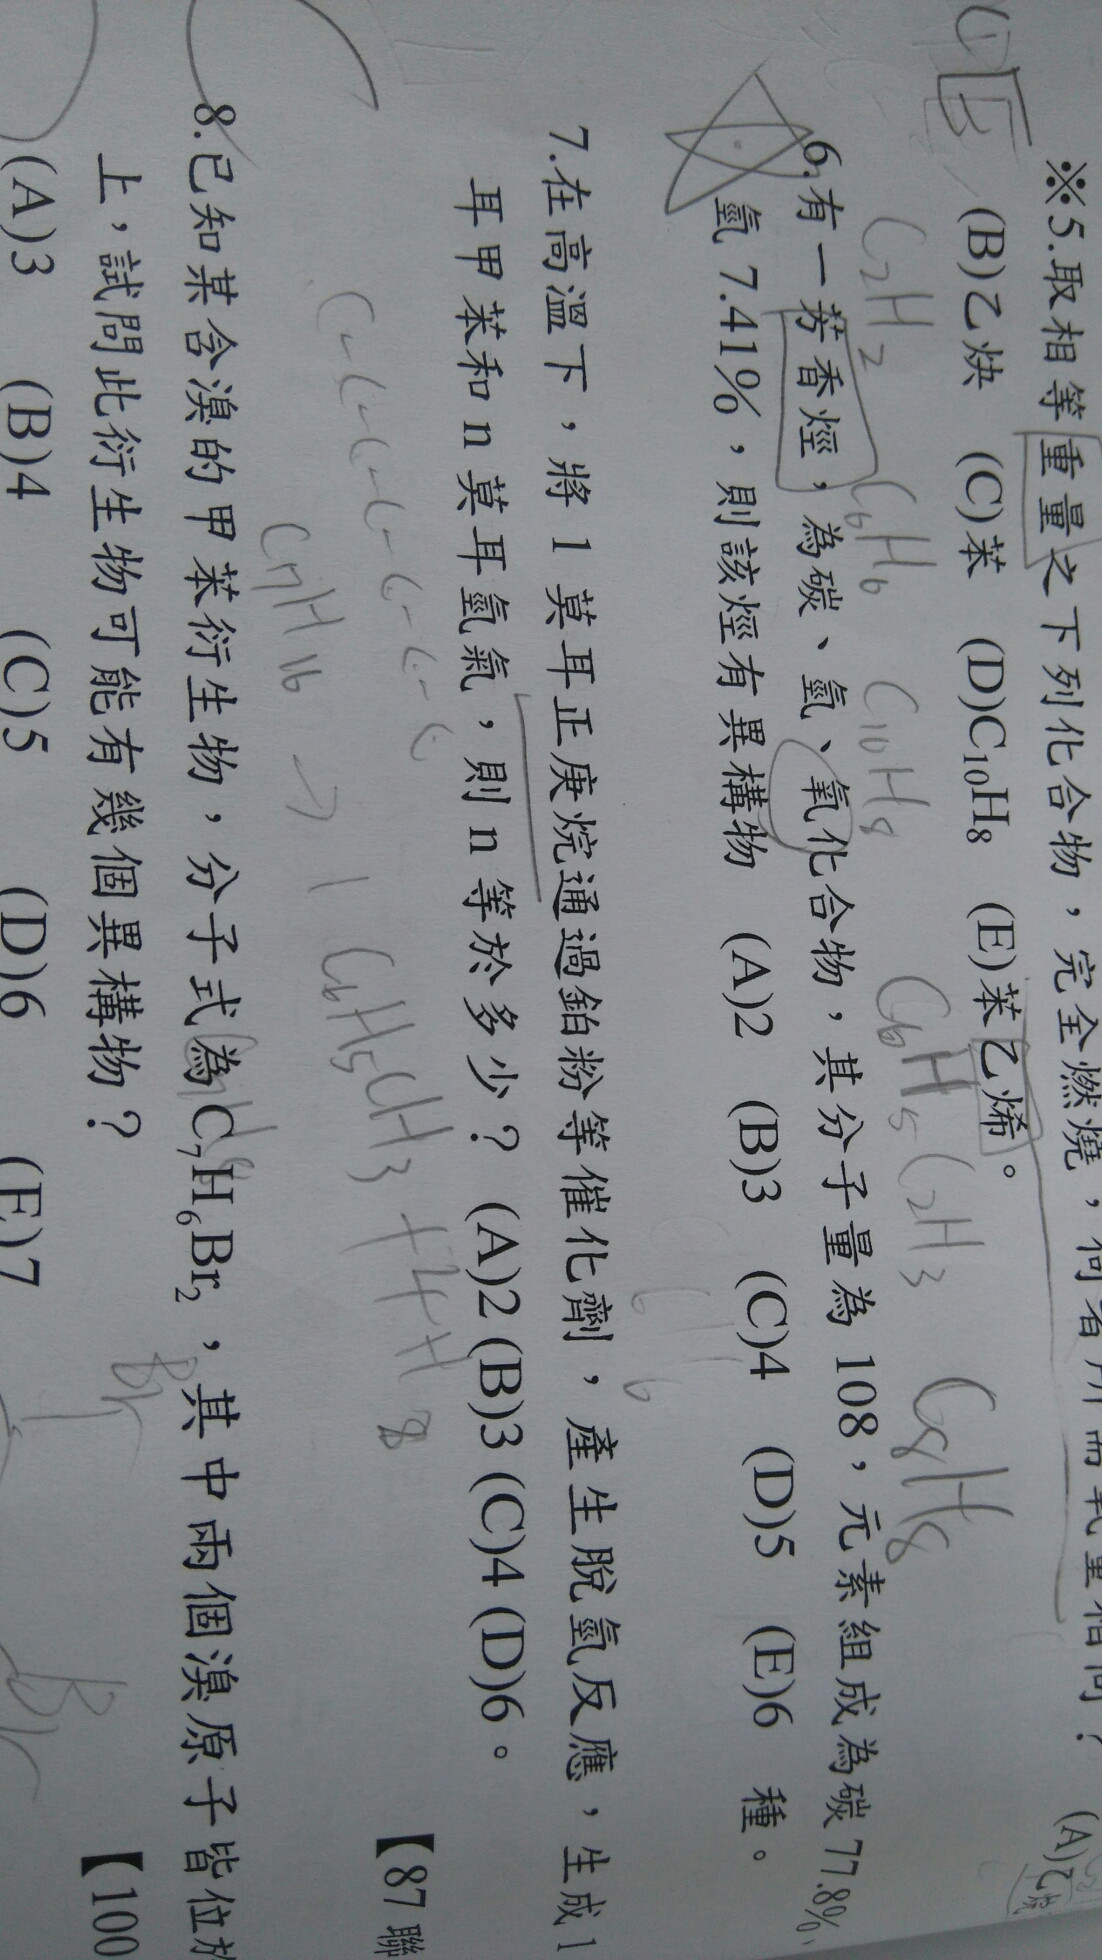 ※5.取相等重量之下列化合物，完全燃燒，何者所需氧量相同？ (A)乙烷
(B)乙炔 (C)苯 (D)C₁₀H₈ (E)苯乙烯。
C₂H₂ C₆H₆ C₁₀H₈ C₆H₅C₂H₃ C₈H₈
6.有一芳香烴，為碳、氫、氧化合物，其分子量為 108，元素組成為碳 77.8%，
氫 7.41%，則該烴有異構物 (A)2 (B)3 (C)4 (D)5 (E)6 種。
7.在高溫下，將 1 莫耳正庚烷通過鉑粉等催化劑，產生脫氫反應，生成 1
耳甲苯和 n 莫耳氫氣，則 n 等於多少？ (A)2 (B)3 (C)4 (D)6。
【87 聯
C-C-C-C-C-C-C
C₇H₁₆ → 1 C₆H₅CH₃ + 4H
8
8.已知某含溴的甲苯衍生物，分子式為 C₇H₆Br₂，其中兩個溴原子皆位於
上，試問此衍生物可能有幾個異構物？
【100
Br
(A)3 (B)4 (C)5 (D)6 (E)7
Br